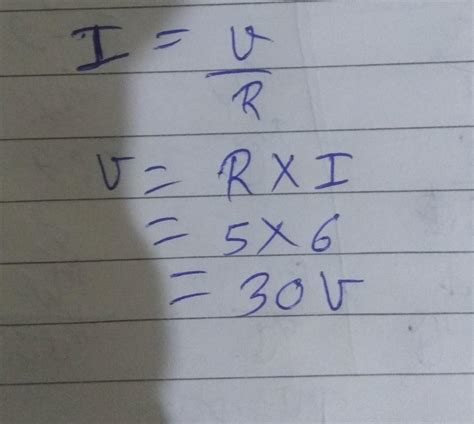 I = V/R
V = R X I
= 5 X 6
= 30V